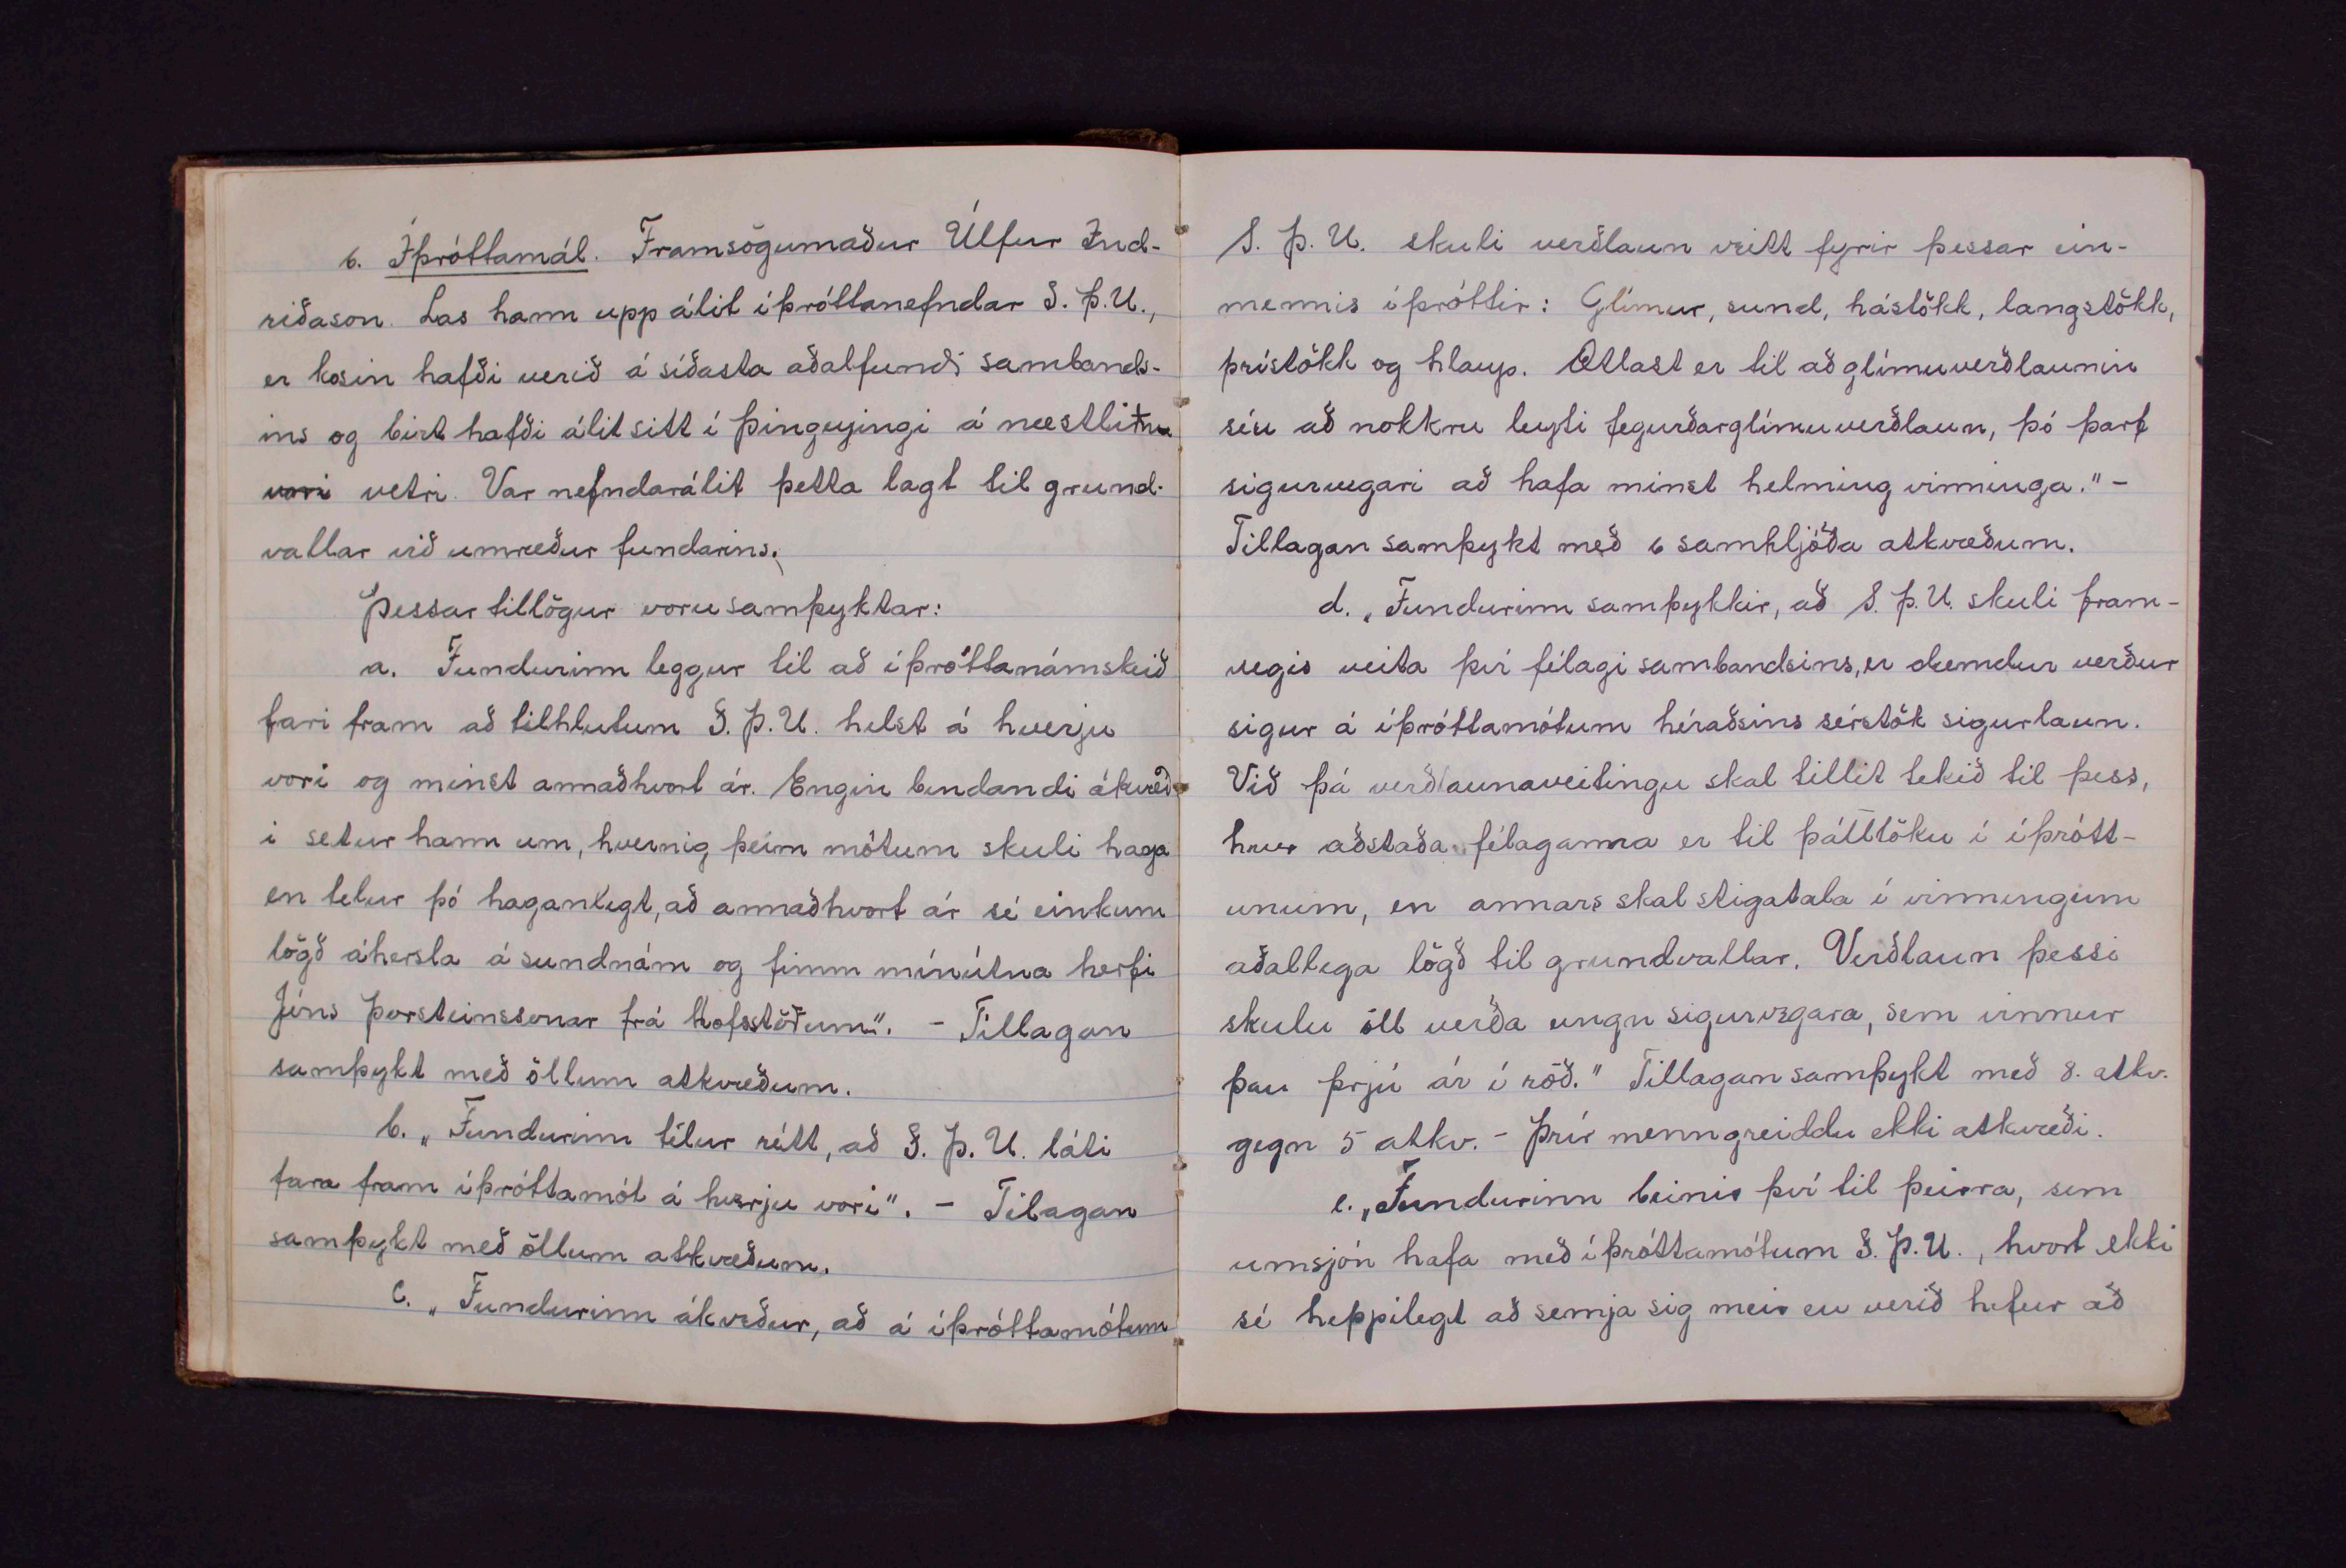 6. Íþróttamál. Framsögumaður Úlfur Ind-
riðason. Las hann upp álit íþróttanefndar S. Þ. U.,
er kosin hafði verið á síðasta aðalfundi sambands-
ins og birt hafði álit sitt í Þingeyingi á næstlitnu
vori vetri. Var nefndarálit þetta lagt til grund-
vallar við umræður fundarins.
Þessar tillögur voru samþyktar:
a. Fundurinn leggur til að íþróttanámskeið
fari fram að tilhlutum S. Þ. U. helst á hverju
vori og minst annaðhvort ár. Engin bindandi ákvæð-
i setur hann um, hvernig þeim mótum skuli haga
en telur þó haganlegt, að annaðhvort ár sé einkum
lögð áhersla á sundnám og fimm mínútna kerfi
Jóns Þorsteinssonar frá Hofsstöðum". - Tillagan
samþykt með öllum atkvæðum.
b. „Fundurinn telur rétt, að S. Þ. U. láti
fara fram íþróttamót á hverju vori". - Tilagan
samþykt með öllum atkvæðum.
c. „Fundurinn ákveður, að á íþróttamótum
S. Þ. U. skuli verðlaun veitt fyrir þessar ein-
mennis íþróttir: Glímur, sund, hástökk, langstökk,
þrístökk og hlaup. Ætlast er til að glímuverðlaunin
séu að nokkru leyti fegurðarglímuverðlaun, þó þarf
sigurvegari að hafa minst helming vinninga." -
Tillagan samþykt með 6 samhljóða atkvæðum.
d. „Fundurinn samþykkir, að S. Þ. U. skuli fram-
vegis veita því félagi sambandsins, er dæmdur verður
sigur á íþróttamótum héraðsins sérstök sigurlaun.
Við þá verðlaunaveitingu skal tillit tekið til þess,
hver aðstaða félaganna er til þátttöku í íþrótt-
unum, en annars skal stigatala í vinningum
aðallega lögð til grundvallar. Verðlaun þessi
skulu öll verða eign sigurvegara, sem vinnur
þau þrjú ár í röð." Tillagan samþykt með 8. atkv.
gegn 5 atkv. - Þrír menn greiddu ekki atkvæði.
e. „Fundurinn beinir því til þeirra, sem
umsjón hafa með íþróttamótum S. Þ. U., hvort ekki
sé heppilegt að semja sig meir en verið hefur að